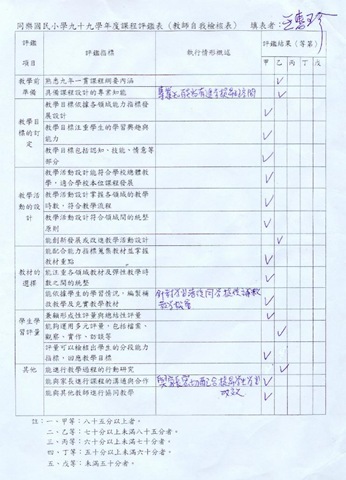 同樂國民小學九十九學年度課程評鑑表（教師自我檢核表） 填表者：
評鑑項目 評鑑指標 執行情形概述 評鑑結果（等第）
甲 乙 丙 丁 戊
教學前準備 熟悉九年一貫課程綱要內涵
具備課程設計的專業知能
教學目標的訂定 教學目標依據各領域能力指標發展設計
教學目標注重學生的學習興趣與能力
教學目標包括認知、技能、情意等部分
教學活動的設計 教學活動設計能符合學校總體教學，適合學校本位課程發展
教學活動設計掌握各領域的教學時數，符合教學流程
教學活動設計符合領域間的統整原則
能創新發展或改進教學活動設計
教材的選擇 能配合能力指標蒐集教材並掌握教材重點
能注重各領域教材及彈性教學時數之間的統整
能依據學生的學習情況，編製補救教學及充實教學教材
學生學習評量 兼顧形成性評量與總結性評量
能夠運用多元評量，包括檔案、觀察、實作、訪談等
評量可以檢核出學生的分段能力指標，回應教學目標
其他 能進行教學過程的行動研究
能與家長進行課程的溝通與合作
能與其他教師進行協同教學
註：一、甲等：八十五分以上者。
二、乙等：七十分以上未滿八十五分者。
三、丙等：六十分以上未滿七十分者。
四、丁等：五十分以上未滿六十分者。
五、戊等：未滿五十分者。